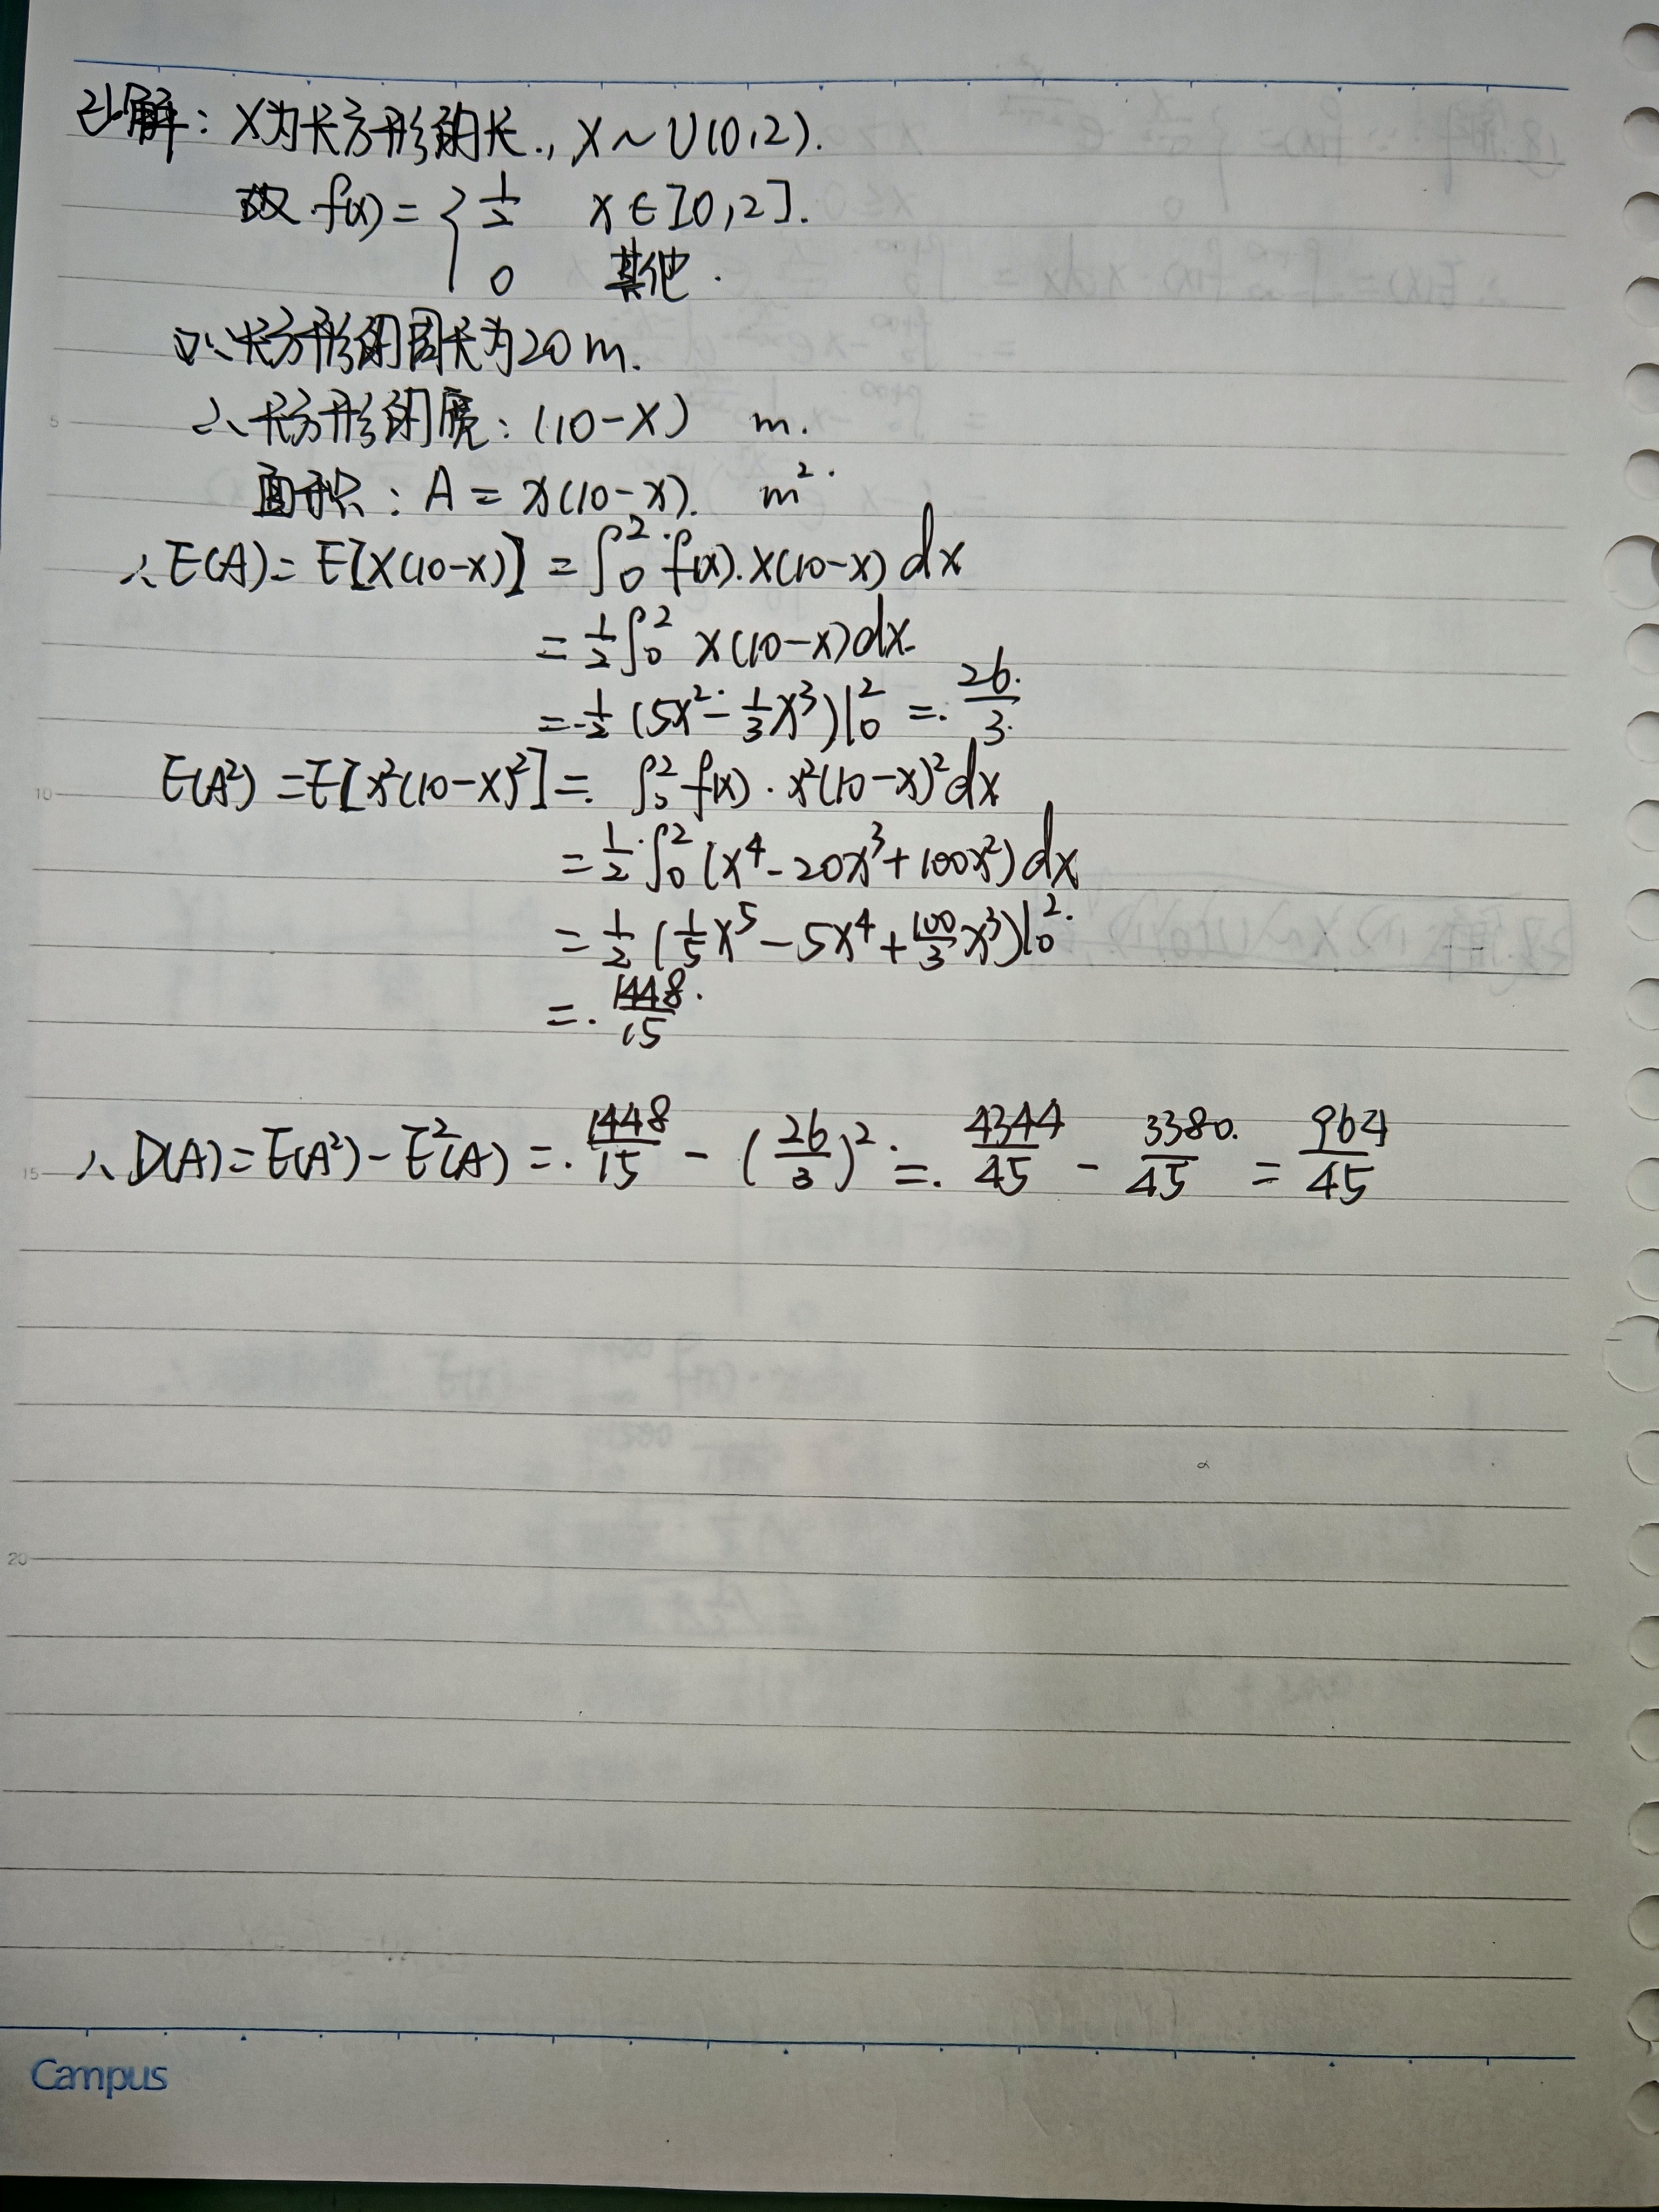 21.解：X为长方形的长，X~U(0,2).
故 f(x)= { 1/2 x∈[0,2].
0 其他.
∵长方形的周长为20m.
∴长方形的宽：(10-X) m.
面积：A = x(10-x). m².
∴E(A)= E[X(10-X)] = ∫₀² f(x).x(10-x) dx
= 1/2 ∫₀² x(10-x)dx.
= 1/2 (5x² - 1/3 x³)|₀² = 26/3.
E(A²) = E[x²(10-X)²] = ∫₀² f(x)·x²(10-x)²dx
= 1/2 ∫₀² (x⁴ - 20x³ + 100x²) dx
= 1/2 (1/5 x⁵ - 5x⁴ + 100/3 x³)|₀²
= 1448/15
∴ D(A) = E(A²) - E²(A) = 1448/15 - (26/3)² = 4344/45 - 3380/45 = 964/45
5
10
15
20
Campus